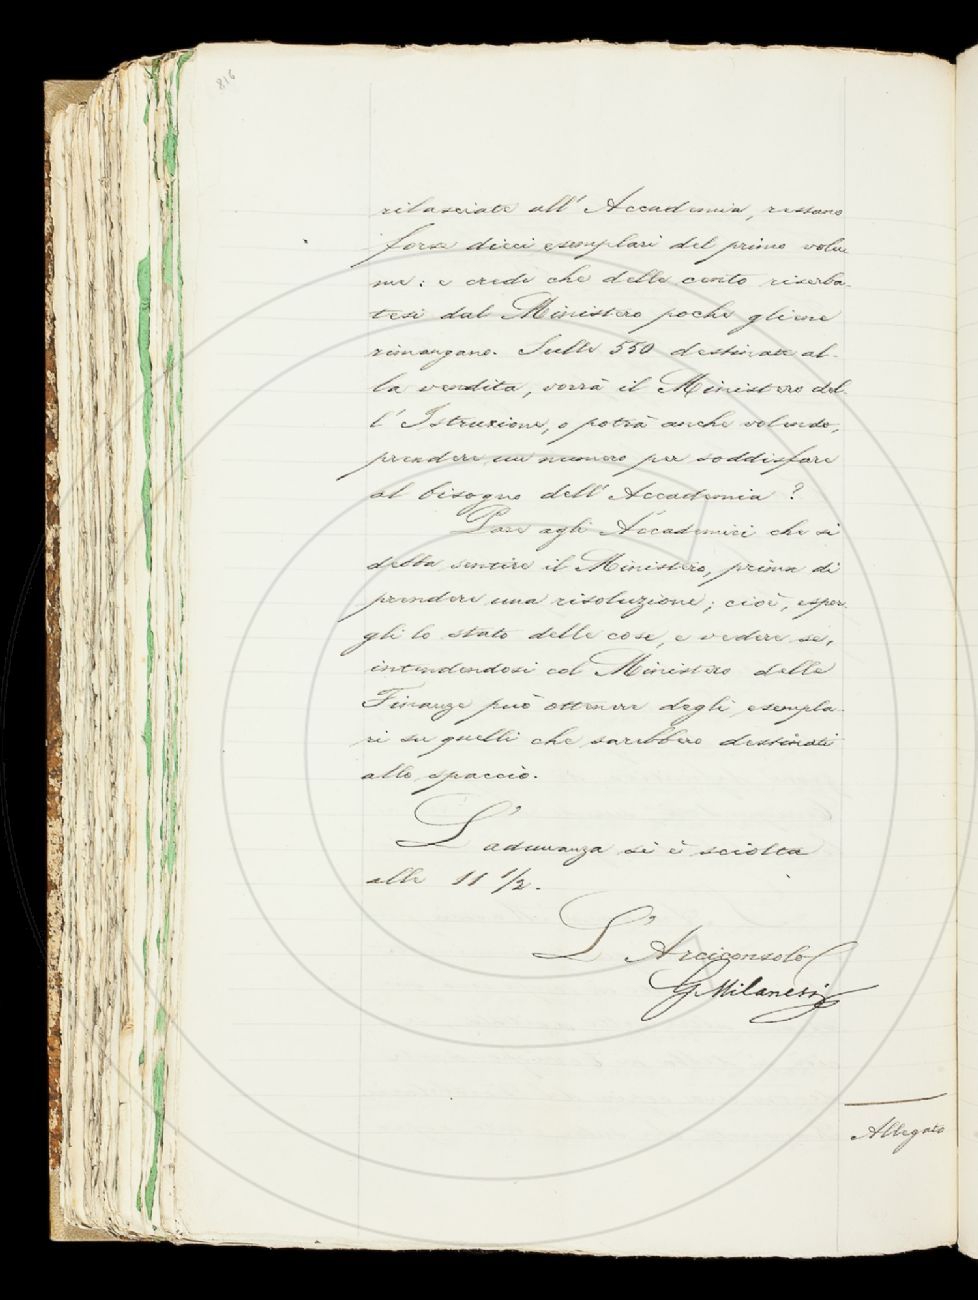 816
rilasciate all' Accademia, restano
forse dieci esemplari del primo volu-
me: e crede che delle cento riserba-
tesi dal Ministero poche gliene
rimangano. Sulle 550 destinate al-
la vendita, vorrà il Ministero del-
l' Istruzione, o potrà anche volendo,
prendere un numero per soddisfare
al bisogno dell' Accademia?
Pare agli Accademici che si
debba sentire il Ministero, prima di
prendere una risoluzione; cioè, espor-
gli lo stato delle cose, e vedere se,
intendendosi col Ministero delle
Finanze può ottenere degli esempla-
ri su quelli che sarebbero destinati
allo spaccio.
L' adunanza si è sciolta
alle 11 1/2.
L' Arciconsolo
G. Milanesi
Allegato